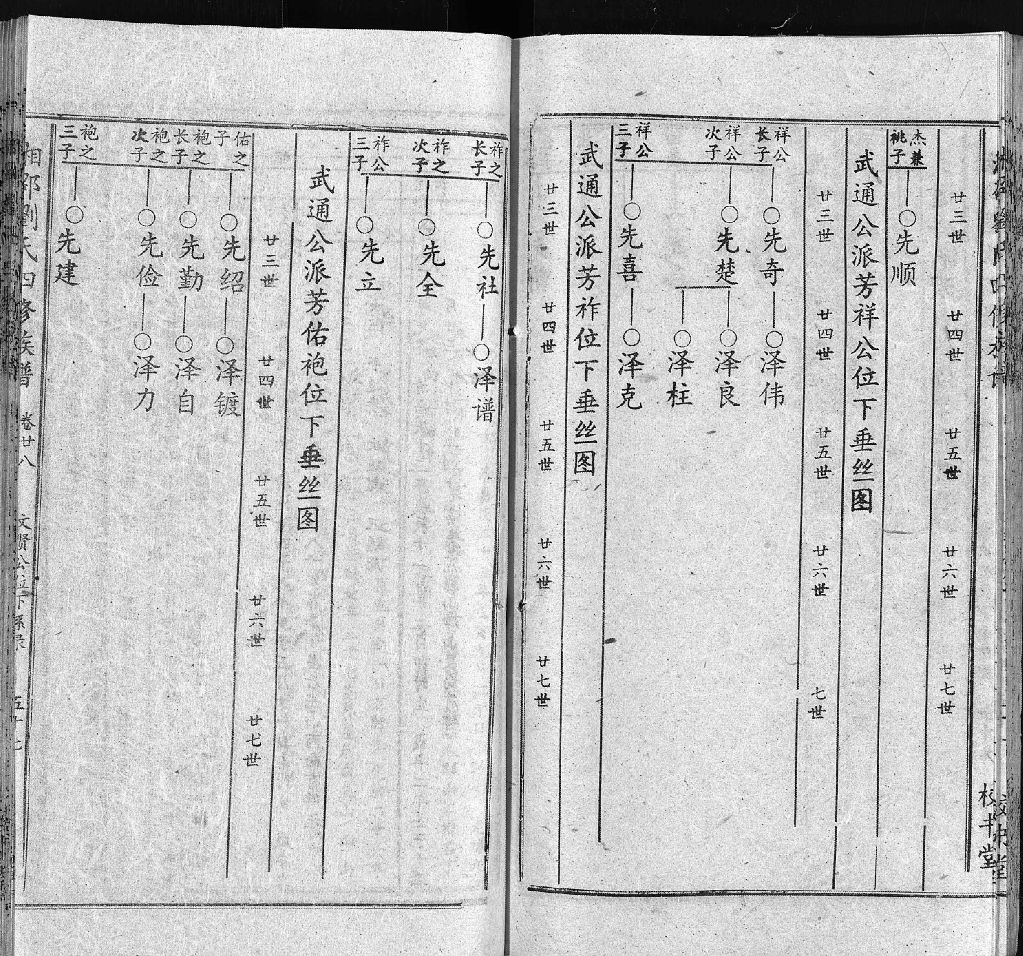 廿三世
廿四世
廿五世
廿六世
廿七世
杰兼
祧子
先顺
武通公派芳祥公位下垂丝图
廿三世
廿四世
廿五世
廿六世
七世
祥公
长子
先奇
泽伟
祥公
次子
先楚
泽良
泽柱
祥公
三子
先喜
泽克
武通公派芳祚位下垂丝图
廿三世
廿四世
廿五世
廿六世
廿七世
祚之
长子
先社
泽谱
祚之
次子
先全
祚公
三子
先立
武通公派芳佑袍位下垂丝图
廿三世
廿四世
廿五世
廿六世
廿七世
佑之
子
先绍
泽镀
袍之
长子
先勤
泽自
袍之
次子
先俭
泽力
袍之
三子
先建
湘邵刘氏四修族谱
卷廿八
文贤公位下系录
五十七